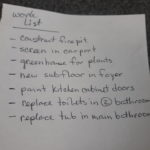 work
List
- construct firepit
- screen in carport
- greenhouse for plants
- new subfloor in foyer
- paint kitchen cabinet doors
- replace toilets in ② bathroom
- replace tub in main bathroom